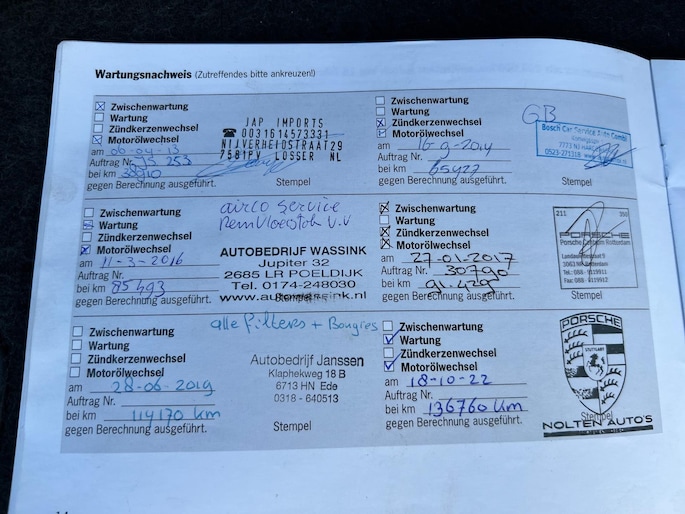 Wartungsnachweis (Zutreffendes bitte ankreuzen!)
Zwischenwartung
Wartung
Zündkerzenwechsel
Motorölwechsel
am 06-04-13
Auftrag Nr. JS 253
bei km
gegen Berechnung ausgeführt.
JAP IMPORTS
☎ 0031614573331
NIJVERHEIDSTRAAT29
7581PV LOSSER NL
Stempel
Zwischenwartung
Wartung
Zündkerzenwechsel
Motorölwechsel
am 16-9-2014
Auftrag Nr.
bei km 65427
gegen Berechnung ausgeführt.
GB
Bosch Car Service Auto Combi
0523-271318
Stempel
Zwischenwartung
Wartung
Zündkerzenwechsel
Motorölwechsel
am 11-3-2016
Auftrag Nr.
bei km 85493
gegen Berechnung ausgeführt.
airco service
Remvloeistof V.V
AUTOBEDRIJF WASSINK
Jupiter 32
2685 LR POELDIJK
Tel. 0174-248030
www.autowassink.nl
Stempel
Zwischenwartung
Wartung
Zündkerzenwechsel
Motorölwechsel
am 27-01-2017
Auftrag Nr. 30790
bei km 91.429
gegen Berechnung ausgeführt.
211
PORSCHE
Porsche Centrum Rotterdam
Stempel
Zwischenwartung
Wartung
Zündkerzenwechsel
Motorölwechsel
am 28-06-2019
Auftrag Nr.
bei km 114170 km
gegen Berechnung ausgeführt.
alle filters + Bougies
Autobedrijf Janssen
Klaphekweg 18 B
6713 HN Ede
0318 - 640513
Stempel
Zwischenwartung
Wartung
Zündkerzenwechsel
Motorölwechsel
am 18-10-22
Auftrag Nr.
bei km 136760 km
gegen Berechnung ausgeführt.
PORSCHE
STUTTGART
Stempel
NOLTEN AUTO'S